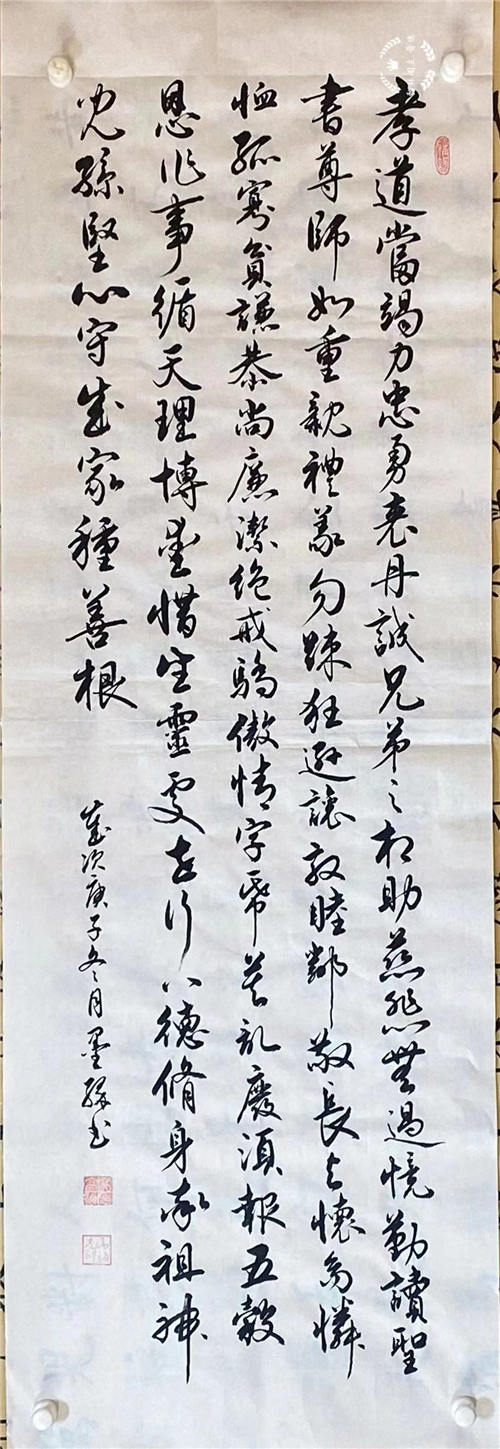 孝道當竭力忠勇表丹誠兄弟之相助慈悲無過境勤讀聖
書尊師如重親禮義勿踈狂遜讓敦睦鄰敬長與懷幼憐
恤孤寡貧謙恭尚廉潔絶戒驕傲情字帋莫亂廢須報五穀
恩作事循天理博愛惜生靈處世行八德脩身率祖神
兒孫堅心守成家種善根
歲次庚子冬月墨緣書